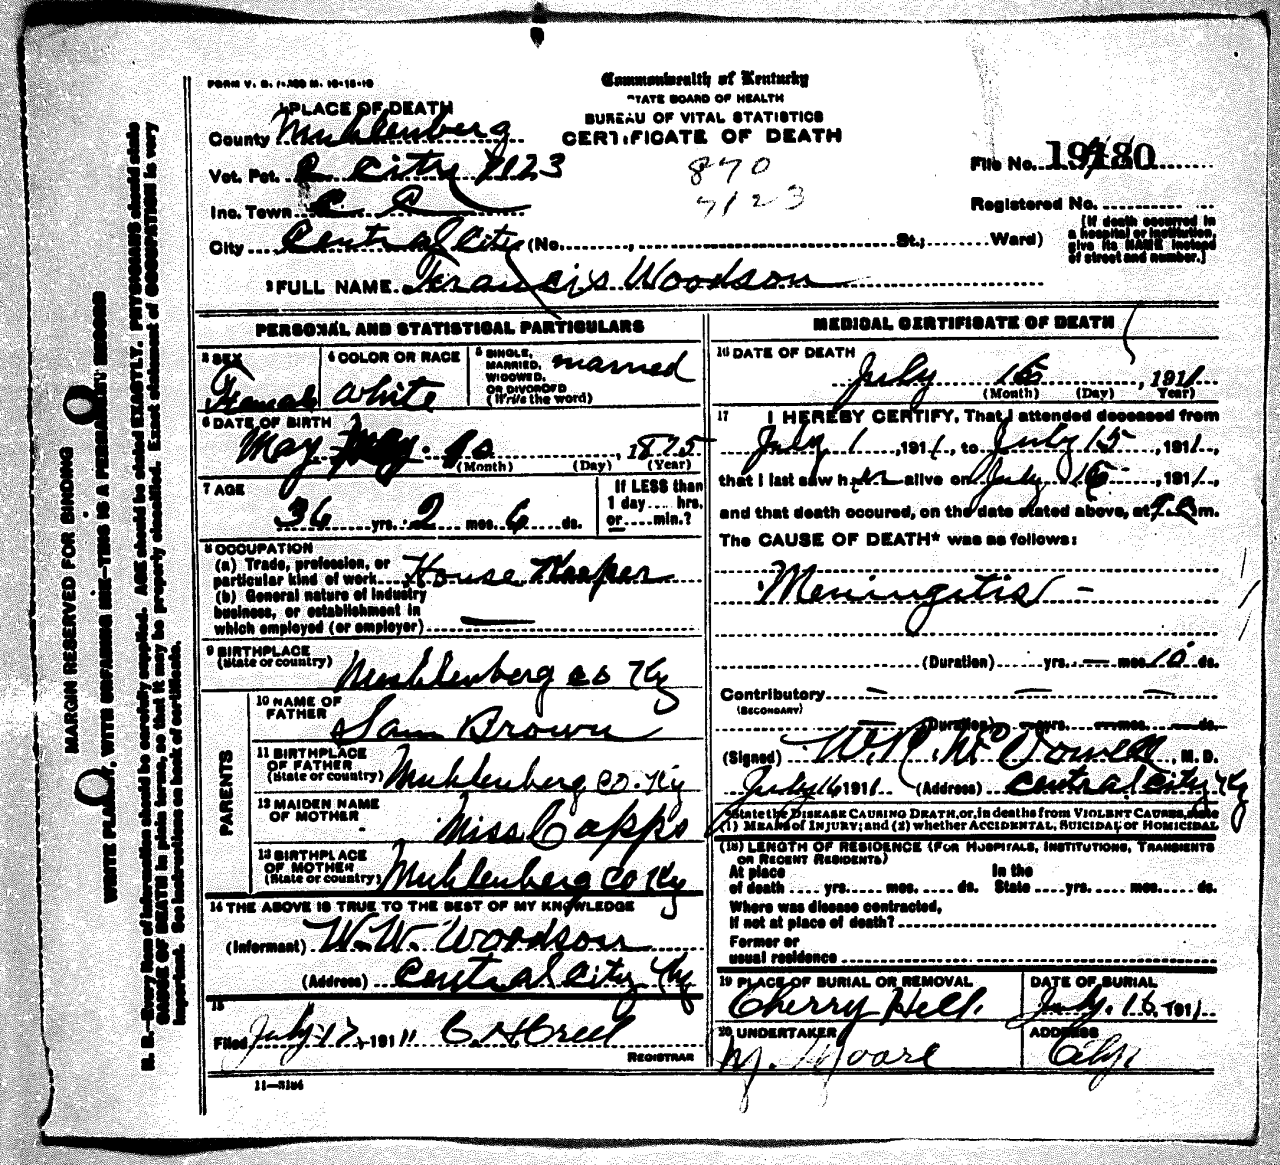 FORM V. S.
Commonwealth of Kentucky
STATE BOARD OF HEALTH
BUREAU OF VITAL STATISTICS
CERTIFICATE OF DEATH
1 PLACE OF DEATH
County Muhlenberg
Vot. Pct. C City 7123
Inc. Town C C
City Central City (No. St.; Ward)
870
7123
File No.
Registered No.
[If death occurred in
a hospital or institution,
give its NAME instead
of street and number.]
2 FULL NAME Francis Woodson
PERSONAL AND STATISTICAL PARTICULARS
3 SEX
Female
4 COLOR OR RACE
White
5 SINGLE,
MARRIED,
WIDOWED,
OR DIVORCED
(Write the word)
married
6 DATE OF BIRTH
May , 1875
(Month) (Day) (Year)
7 AGE
36 yrs. 2 mos. 6 ds.
If LESS than
1 day hrs.
or min.?
8 OCCUPATION
(a) Trade, profession, or
particular kind of work House Keeper
(b) General nature of industry
business, or establishment in
which employed (or employer) —
9 BIRTHPLACE
(State or country) Muhlenberg co Ky
PARENTS
10 NAME OF
FATHER Sam Brown
11 BIRTHPLACE
OF FATHER
(State or country) Muhlenberg co. Ky
12 MAIDEN NAME
OF MOTHER Miss Capps
13 BIRTHPLACE
OF MOTHER
(State or country) Muhlenberg co Ky
14 THE ABOVE IS TRUE TO THE BEST OF MY KNOWLEDGE
(Informant) W. W. Woodson
(Address) Central City Ky
15
Filed July 17, 1911 C. H Creel
REGISTRAR
11—3184
MEDICAL CERTIFICATE OF DEATH
16 DATE OF DEATH
July 15 , 1911
(Month) (Day) Year)
17 I HEREBY CERTIFY, That I attended deceased from
July 1 , 1911, to July 15 , 1911,
that I last saw her alive on July 15 , 1911,
and that death occured, on the date stated above, at m.
The CAUSE OF DEATH* was as follows:
Meningitis —
(Duration) yrs. — mos. 10 ds.
Contributory — — —
(SECONDARY)
— (Duration) — yrs. — mos. — ds.
(Signed) W. R. McDowell, M. D.
July 16 1911 (Address) Central City Ky
*State the DISEASE CAUSING DEATH, or, in deaths from VIOLENT CAUSES, state
(1) MEANS of INJURY; and (2) whether ACCIDENTAL, SUICIDAL, or HOMICIDAL
(18) LENGTH OF RESIDENCE (FOR HOSPITALS, INSTITUTIONS, TRANSIENTS
OR RECENT RESIDENTS)
At place In the
of death yrs. mos. ds. State yrs. mos. ds.
Where was disease contracted,
if not at place of death?
Former or
usual residence
19 PLACE OF BURIAL OR REMOVAL
Cherry Hill.
DATE OF BURIAL
July. 16, 1911
20 UNDERTAKER
M. Moore
ADDRESS
City.
MARGIN RESERVED FOR BINDING
WRITE PLAINLY, WITH UNFADING INK—THIS IS A PERMANENT RECORD
N. B.—Every item of information should be carefully supplied. AGE should be stated EXACTLY. PHYSICIANS should state
CAUSE OF DEATH in plain terms, so that it may be properly classified. Exact statement of OCCUPATION is very
important. See instructions on back of certificate.